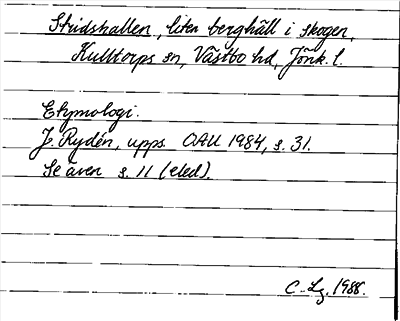 Stridshallen, liten berghäll i skogen,
Kulltorps sn, Västbo hd, Jönk. l.
Etymologi.
J. Rydén, upps. OAU 1984, s. 31.
Se även s. 11 (eled).
C. Lg. 1988.